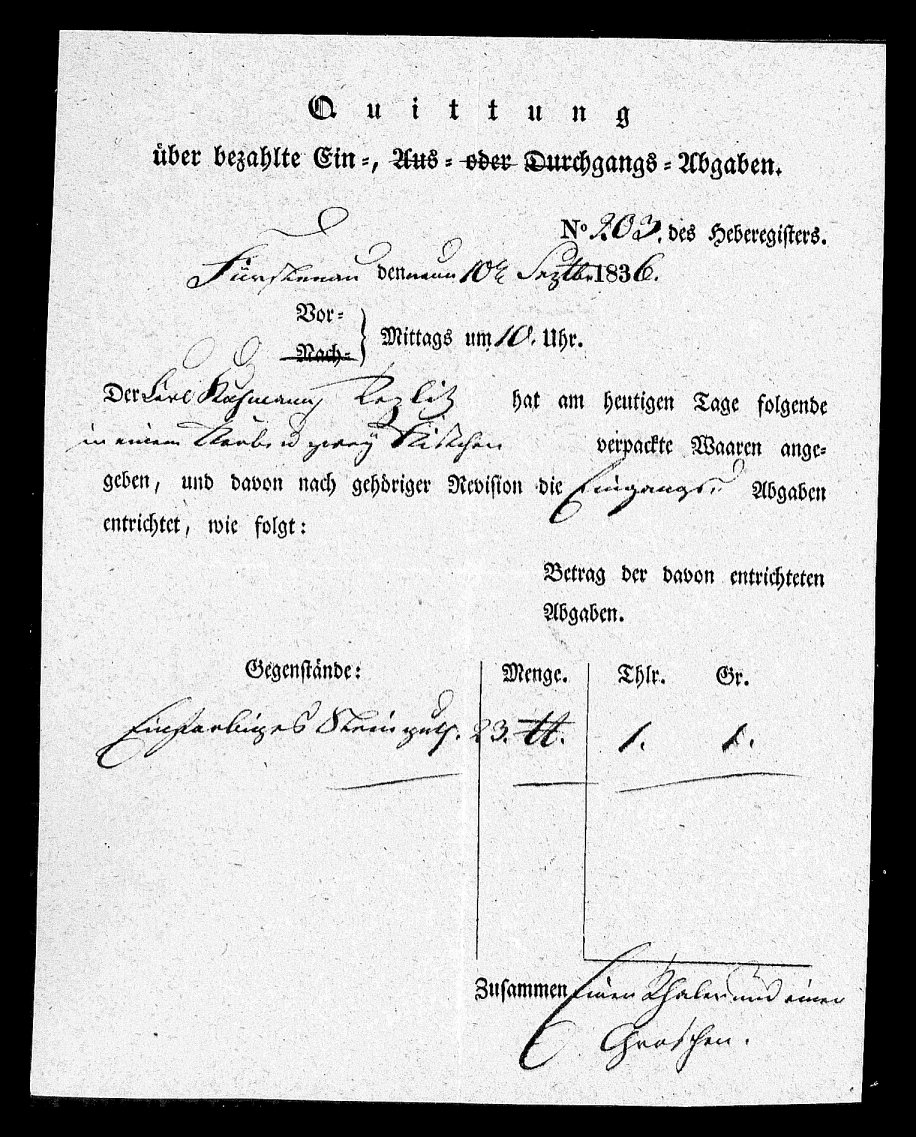 Quittung
über bezahlte Ein-, Aus- oder Durchgangs-Abgaben.
No 203. des Heberegisters.
Fürstenau den 10t Septbr. 1836.
Vor-
Nach-
Mittags um 10. Uhr.
Der Carl hat am heutigen Tage folgende
in einem und zwey Kistchen verpackte Waaren ange-
geben, und davon nach gehöriger Revision die Eingangs- Abgaben
entrichtet, wie folgt:
Betrag der davon entrichteten
Abgaben.
Gegenstände: Menge. Thlr. Gr.
Einfarbiges Steinguth. 23. ℔. 1. 1.
Zusammen Einen Thaler und einen
Groschen.